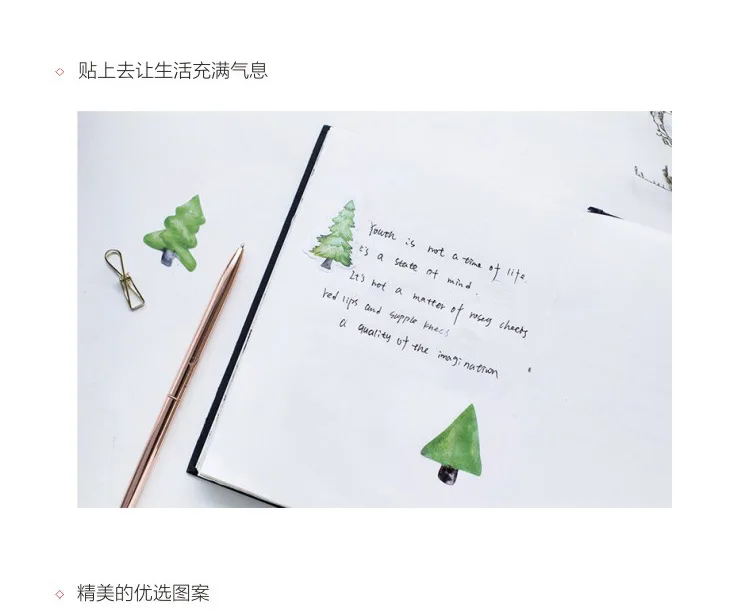 贴上去让生活充满气息
Youth is not a time of life.
it's a state of mind.
It's not a matter of rosey cheeks
red lips and supple knees
a quality of the imagination
精美的优选图案